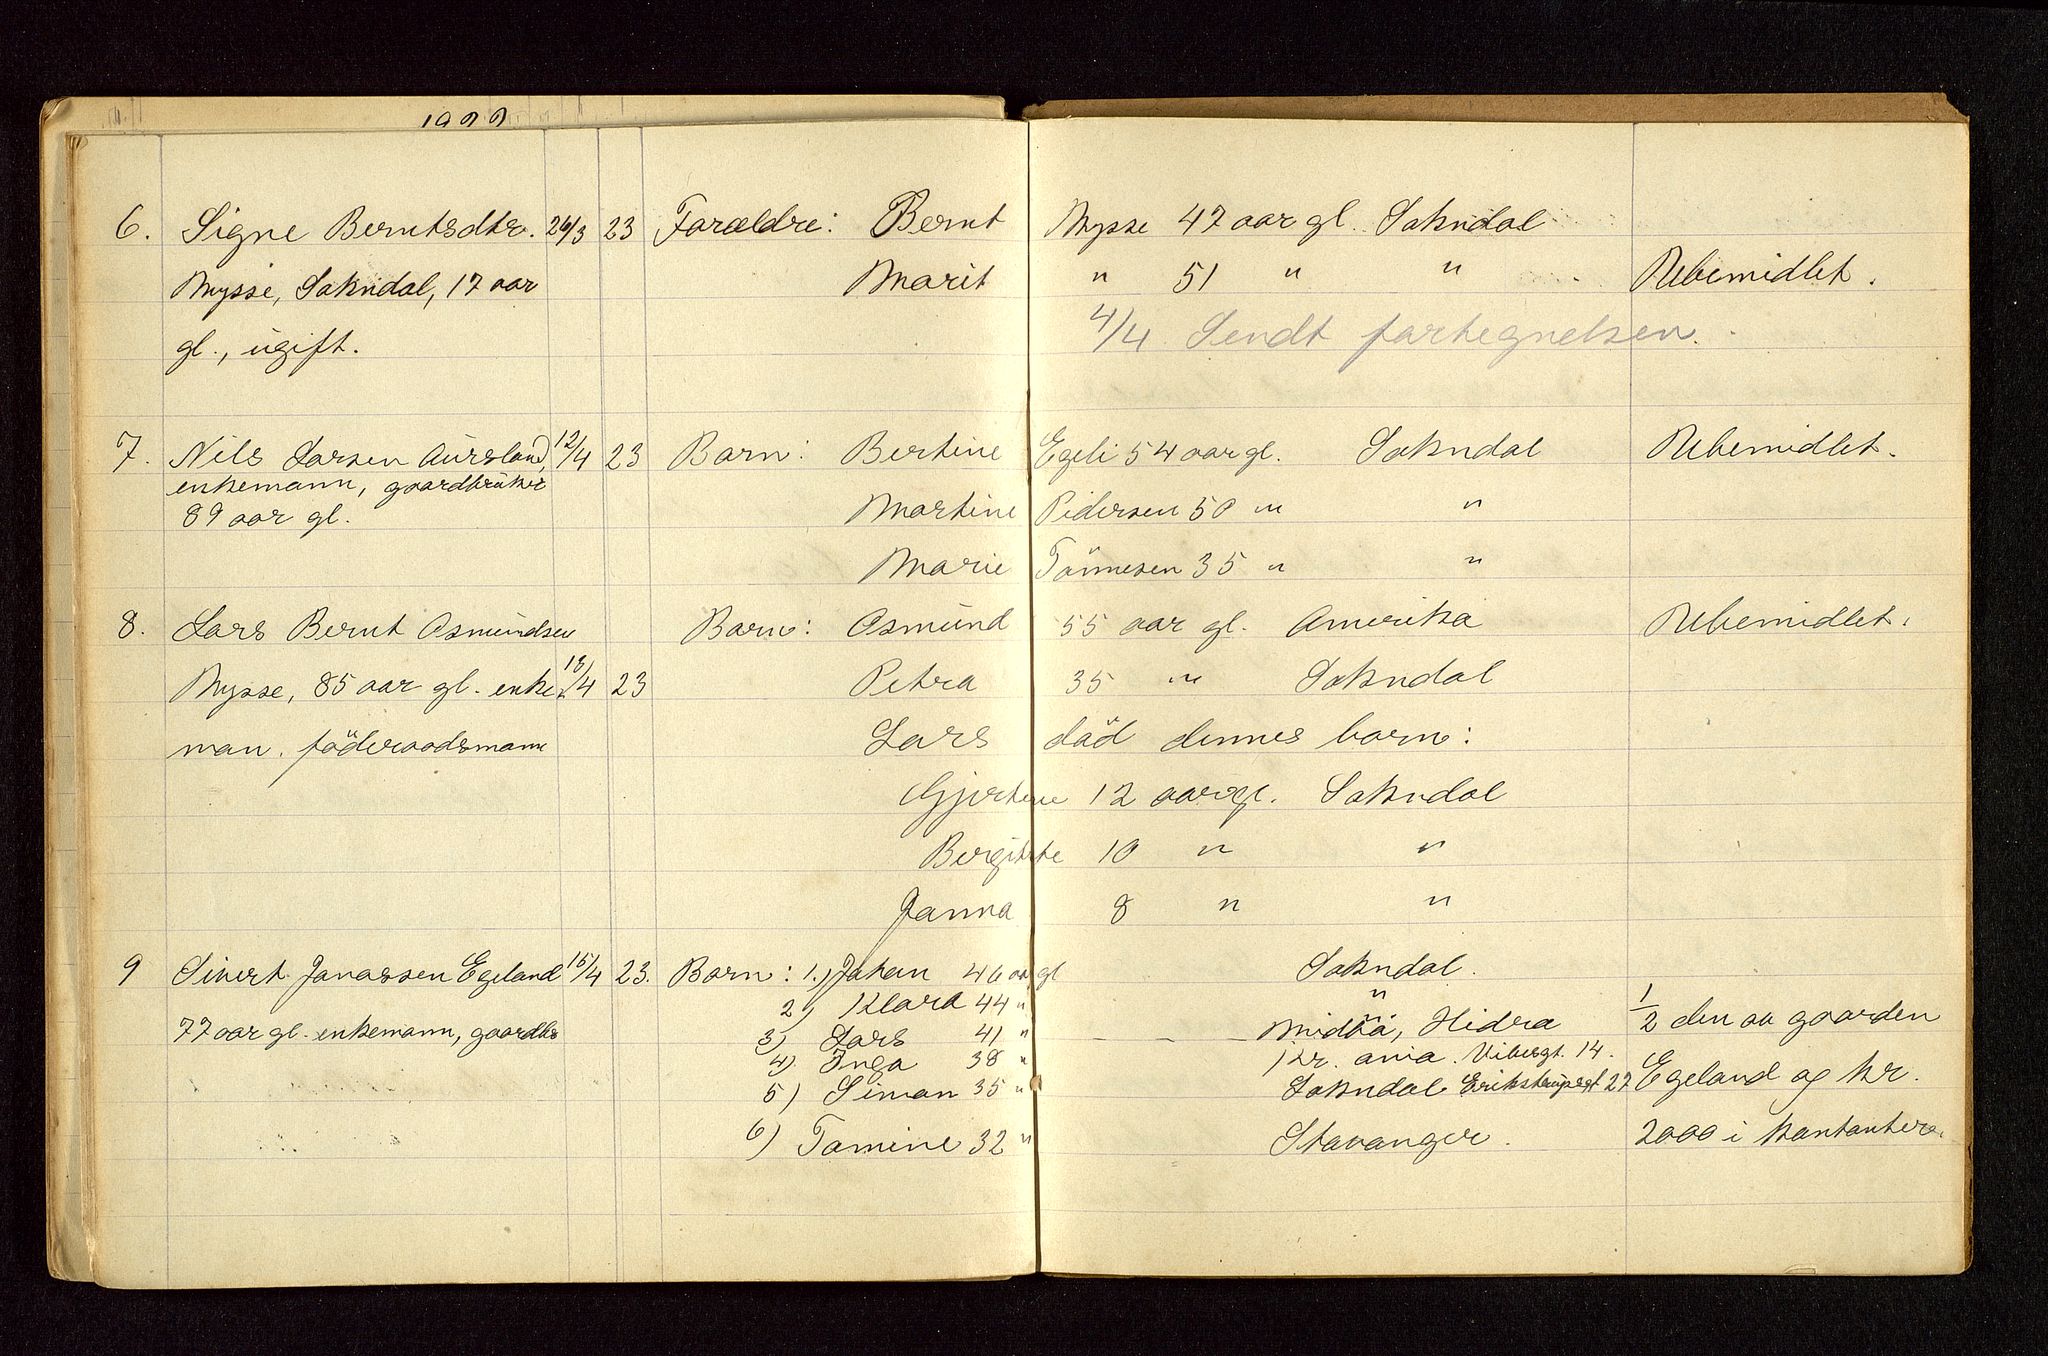 6. Signe Berntsdtr. 26/3 23 Forældre: Bernt Mysse 47 aar gl. Sokndal
Mysse, Sokndal, 17 aar Marit " 51 " " Ubemidlet.
gl., ugift. 4/4 Sendt fortegnelsen.
7. Nils Larsen Aursland, 12/4 23 Barn: Bertine Egeli 54 aar gl. Sokndal Ubemidlet.
enkemann, gaardbruker
89 aar gl. Martine Pedersen 50 " "
Marie Tönnesen 35 " "
8. Lars Bernt Osmundsen Barn: Osmund 55 aar gl. Amerika Ubemidlet.
Mysse, 85 aar gl. enke 13/4 23 Petra 35 " Sokndal
man. föderaadsmann Lars död dennes barn:
Gjertine 12 aar gl. Sokndal
Bergitte 10 " "
Janna 8 " "
9 Sivert Jonassen Egeland 15/4 23. Barn: 1.) Johan 46 aar gl Sokndal.
2) Klara 44 " "
77 aar gl. enkemann, gaardbr 3) Lars 41 " Midbö, Hidra 1/2 den av gaarden
4) Inga 38 "
5) Simon 35 " Sokndal Egeland og kr.
6) Tomine 32 " Stavanger. 2000 i kontanter.